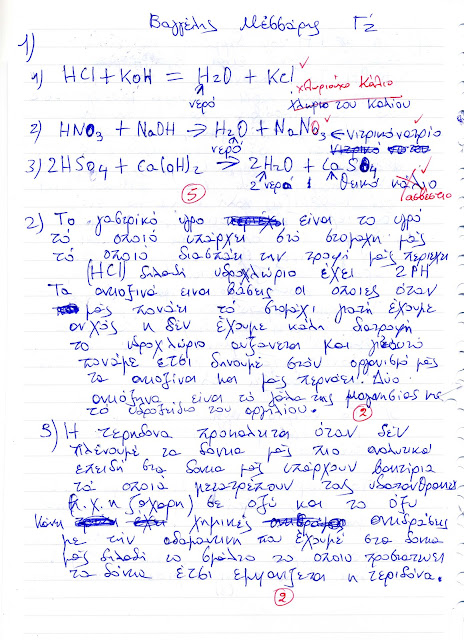 Βαγγέλης Μέσσαρης Γ2
1)
1) HCl + KOH = H₂O + KCl
χλωριούχο κάλιο
νερό
χλωριο του καλίου
2) HNO₃ + NaOH → H₂O + NaNO₃ ← Νιτρικό νατρίο
νερό
3) 2HSO₄ + Ca(OH)₂ → 2H₂O + CaSO₄
2 νερα 1 θειικό κάλιο
ασβέστιο
5
2) Το γαστρικό υγρο είναι το υγρό
τό οποίό υπάρχει στό στομάχη μάς
τό οποίό διασπάει την τροφή μάς περιέχει
(HCl) δηλαδή υδροχλώριο έχει 2PH
Τα αντιοξινά ειναι βάσεις οι οποίες όταν
μάς πονάει τό στομάχι γιατή έχουμε
ανχός η δέν έχουμε κάλη διατροφή
το υδροχλώριο αυξάνεται και γιαυτό
πονάμε έτσι δίνουμε στόν οργανισμό μάς
τα αντιόξινα και μάς περνάει. Δύο
αντιόξηνα είναι τό γάλα της μαγνησίας και
τό υδροξείδιο του αργιλίου.
2
3) Η τερηδόνα προκαλήται όταν δέν
πλένουμε τα δόντια μάς πιο αναλυτικά
επειδή στα δόντια μάς υπάρχουν βακτίρια
τά οποία μετατρέπουν τούς υδατάνθρακες
(π.χ. η ζάχαρη) σε οξύ και το οξύ
Κάνει χημικές αντιδράσεις
με την αδαμαντίνη που έχουμε στα δόντια
μάς δηλαδή το σμάλτο το οποίο προστατεύει
τα δόντια έτσι εμφανίζεται η τεριδόνα.
2